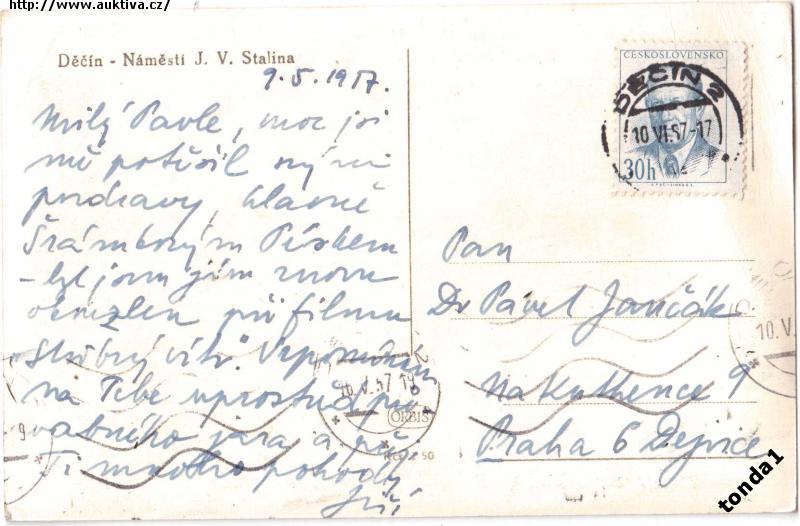 http://www.auktiva.cz/
Děčín - Náměstí J. V. Stalina
9.5.1957.
Milý Pavle, moc jsi
mě potěšil svými
pozdravy, hlavně
Šrámkovým Pískem
– byl jsem jím znovu
okouzlen při filmu
„Stříbrný vítr“. Vzpomínám
na Tebe uprostřed
vabného jara a
Ti mnoho pohody
Jiří
ČESKOSLOVENSKO
30h
DĚČÍN 2
10 VI.57-17
Pan
Dr Pavel Jančák
Na Kuthence 9
Praha 6 Dejvice
10.V.57 19
10.V.
9
ORBIS
50
tonda1